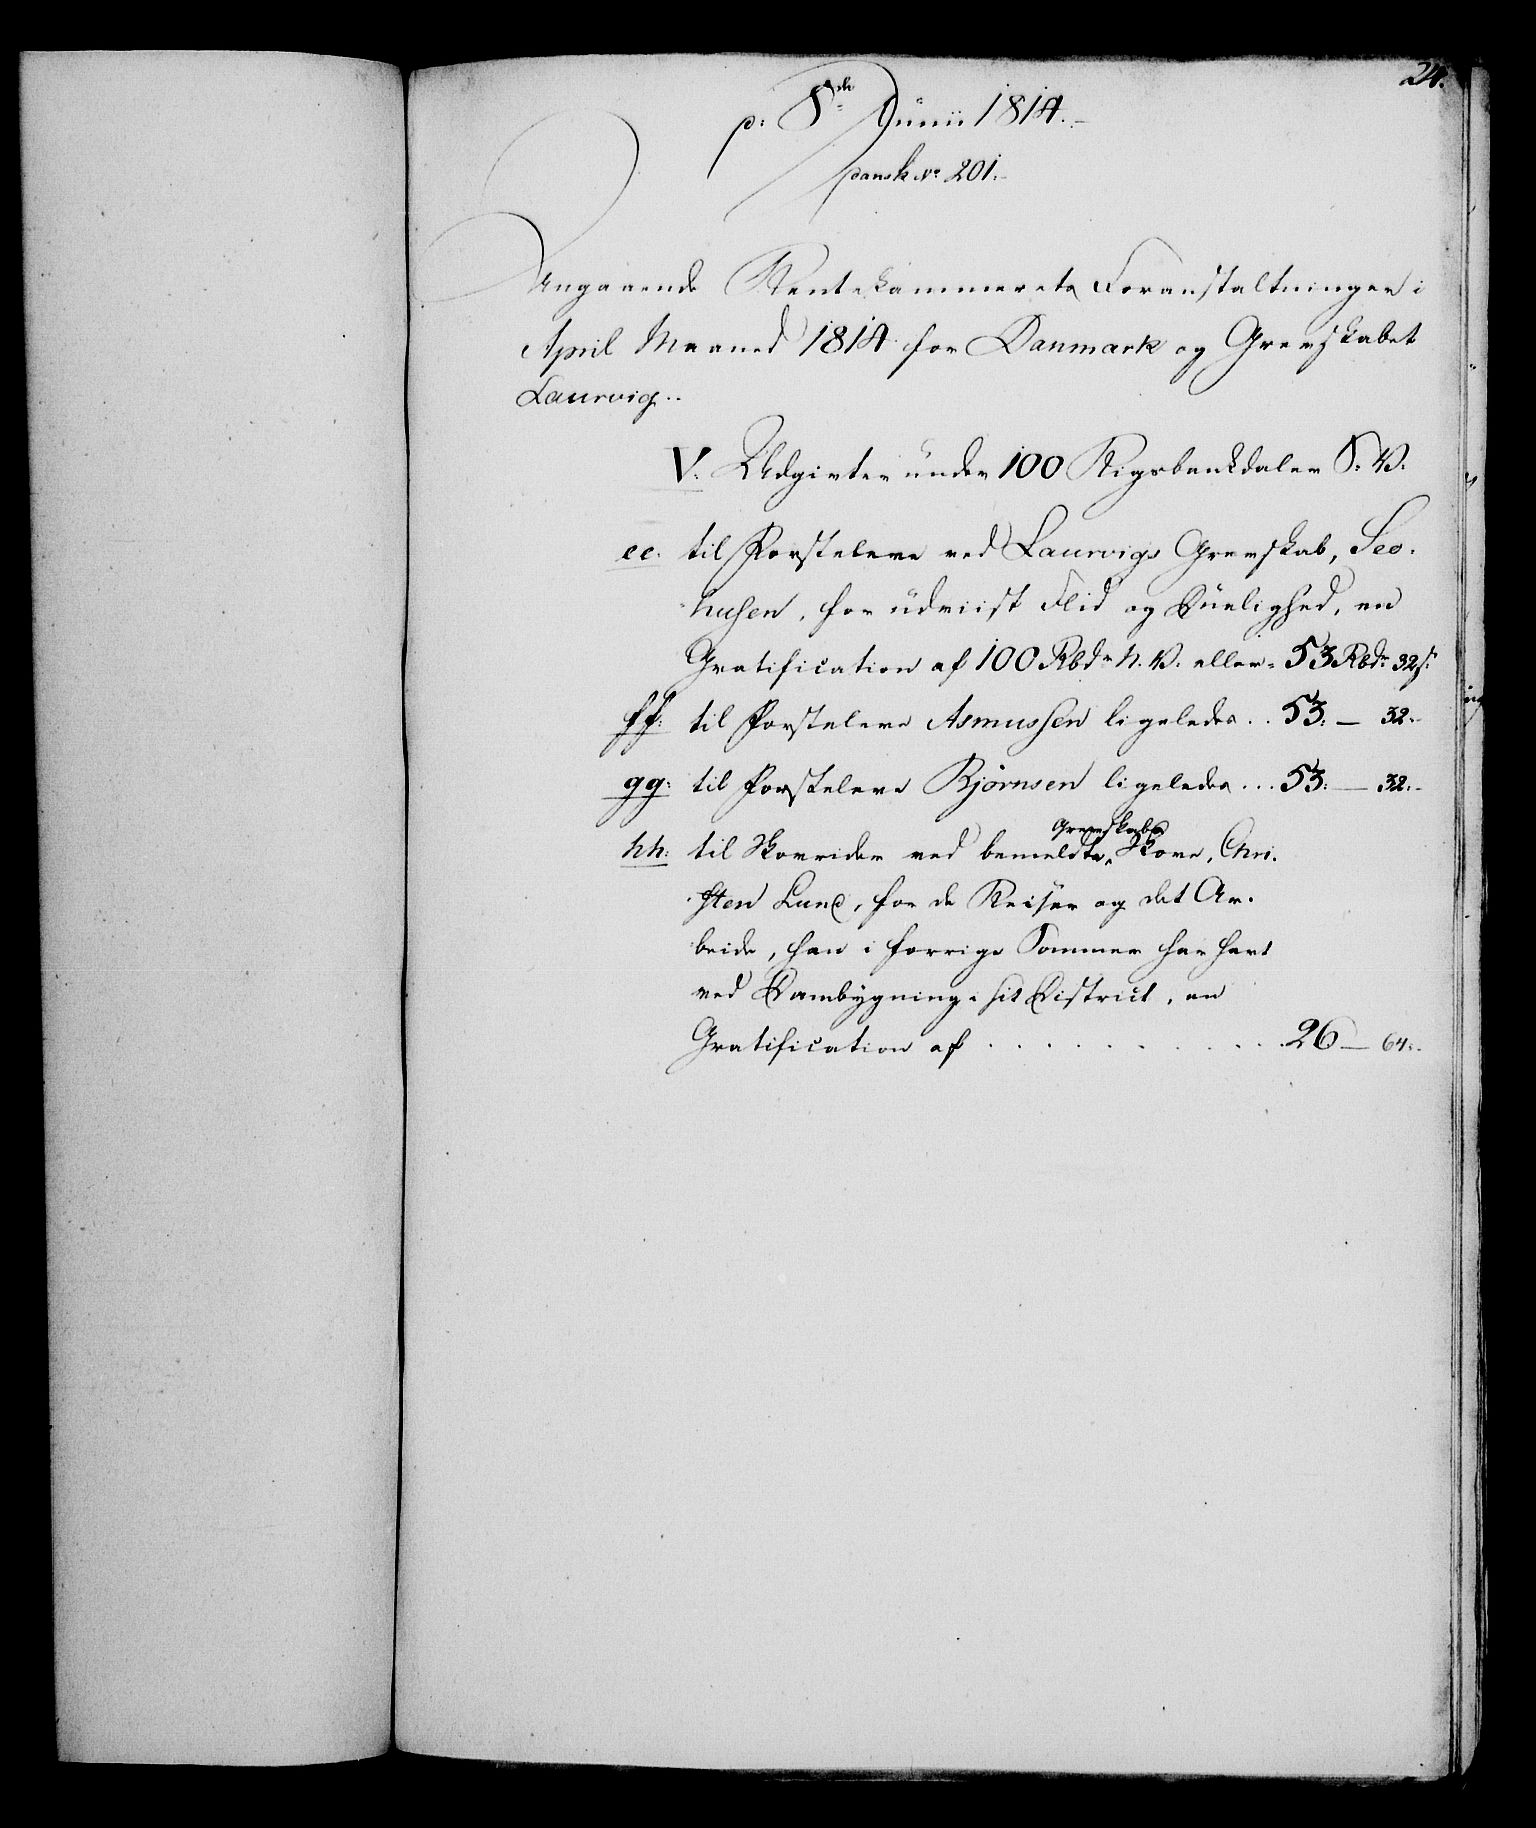 24.
p: 8de Junii 1814.
dansk No 201.
Angaaende Rentekammerets Foranstaltninger i
April Maaned 1814 for Danmark og Grevskabet
Laurvig.
V. Udgivter under 100 Rigsbankdaler S. V.
ee. til Forsteleve ved Laurvigs Grevskab, Seo-
husen, for udviist Flid og Duelighed, en
Gratification af 100 Rbdr N. V. eller 53 Rbdr 32 s:
ff: til Forsteleve Asmussen ligeledes .. 53. — 32.
gg: til Forsteleve Bjørnsen ligeledes ... 53. — 32.
hh: til Skovrider ved bemeldte Grevskabs Skove, Chri-
sten Lund, for de Reiser og det Ar-
beide, han i forrige Sommer har havt
ved Dambygning i sit District, en
Gratification af . . . . . . . . . . . 26 — 64.